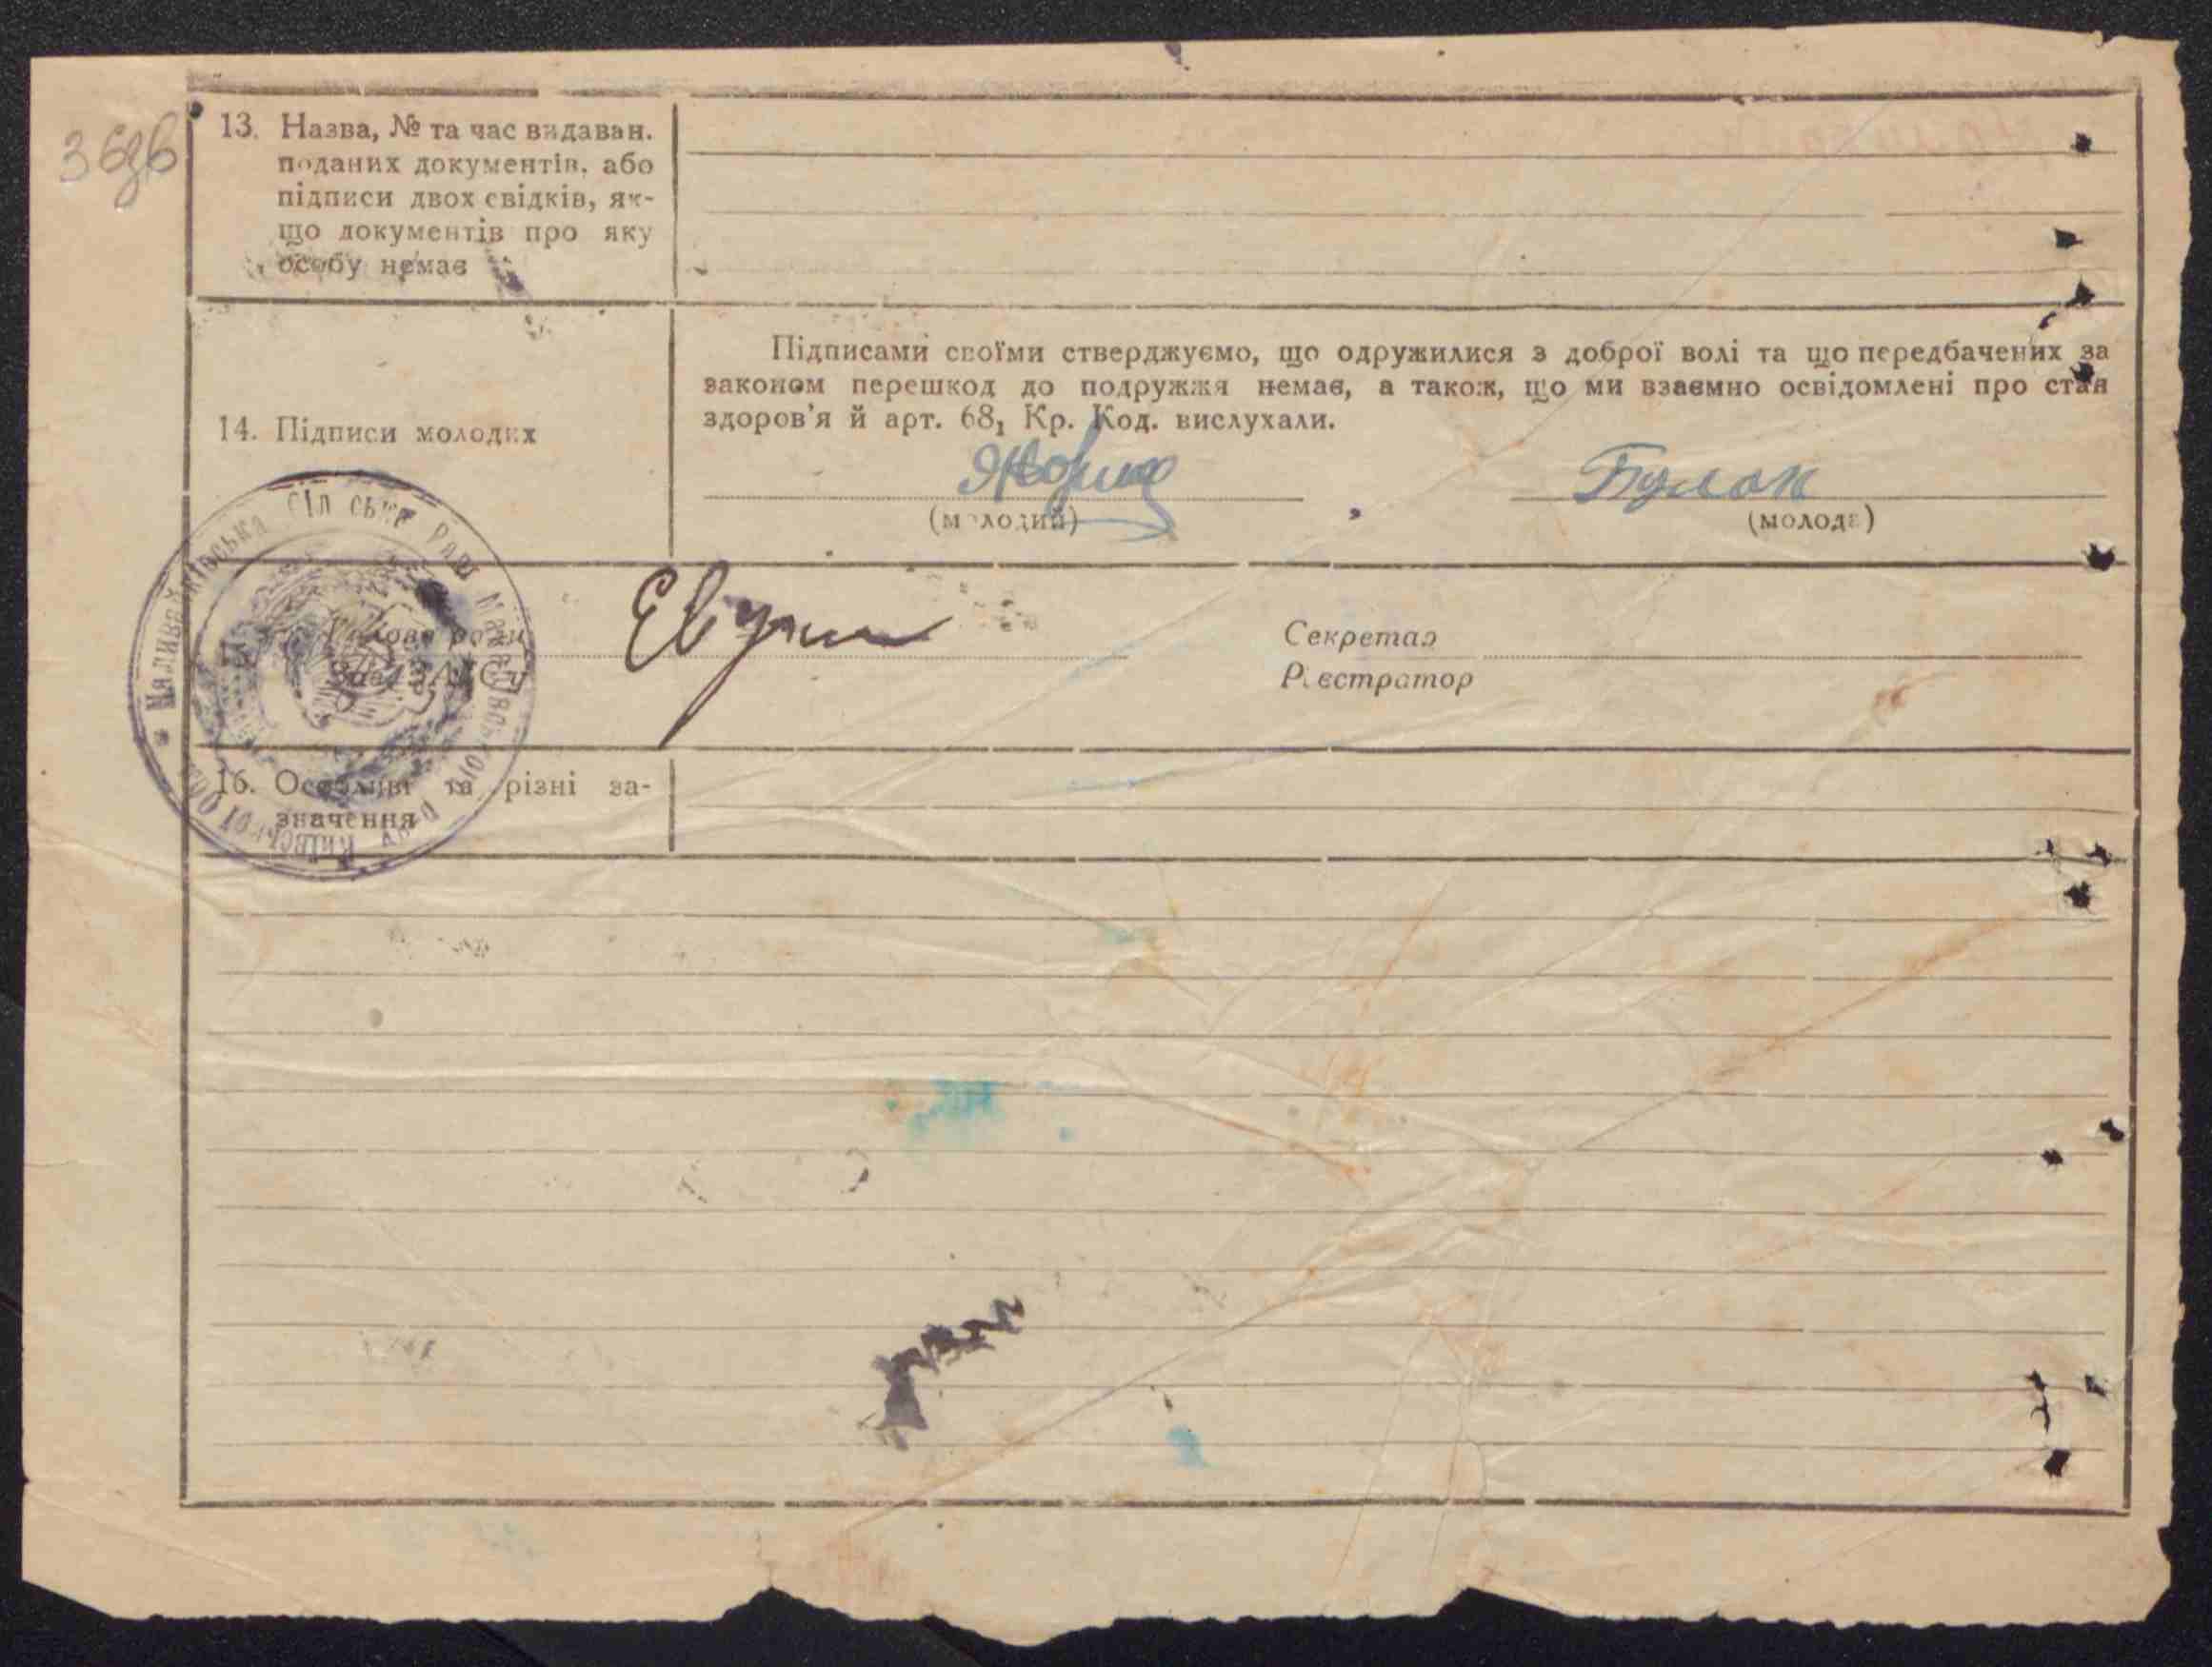 36зв
13. Назва, № та час видаван.
поданих документів, або
підписи двох свідків, як-
що документів про яку
особу немає
Підписами своїми стверджуємо, що одружилися з доброї волі та що передбачених за
законом перешкод до подружжя немає, а також, що ми взаємно освідомлені про стан
здоров'я й арт. 68₁ Кр. Код. вислухали.
14. Підписи молодих
Булах
(молодий)
(молода)
Голова ради
Зав. ЗАГС'у
Секретар
Реєстратор
16. Особливі та різні за-
значення
Наливайківська сільська рада Макарівського р-ну Київської обл.